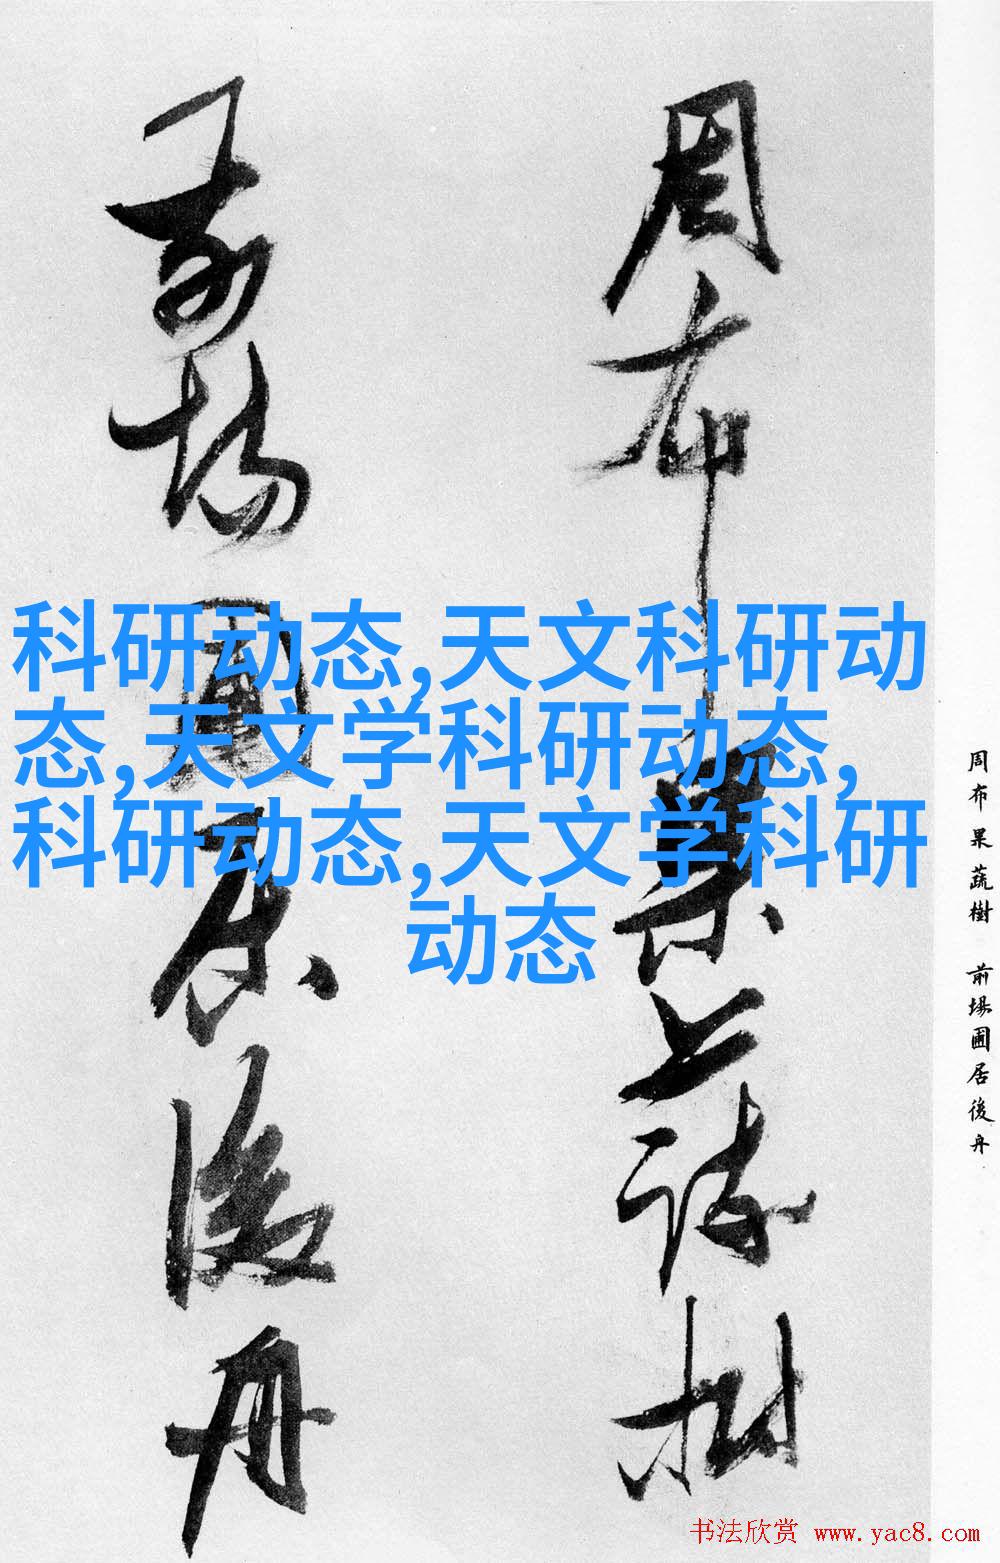 周布果蔬樹
前場圃居後舟
科研动态,天文科研动
态,天文学科研动态,
科研动态,天文学科研
动态
周布果蔬樹 前場圃居後舟
书法欣赏 www.yac8.com